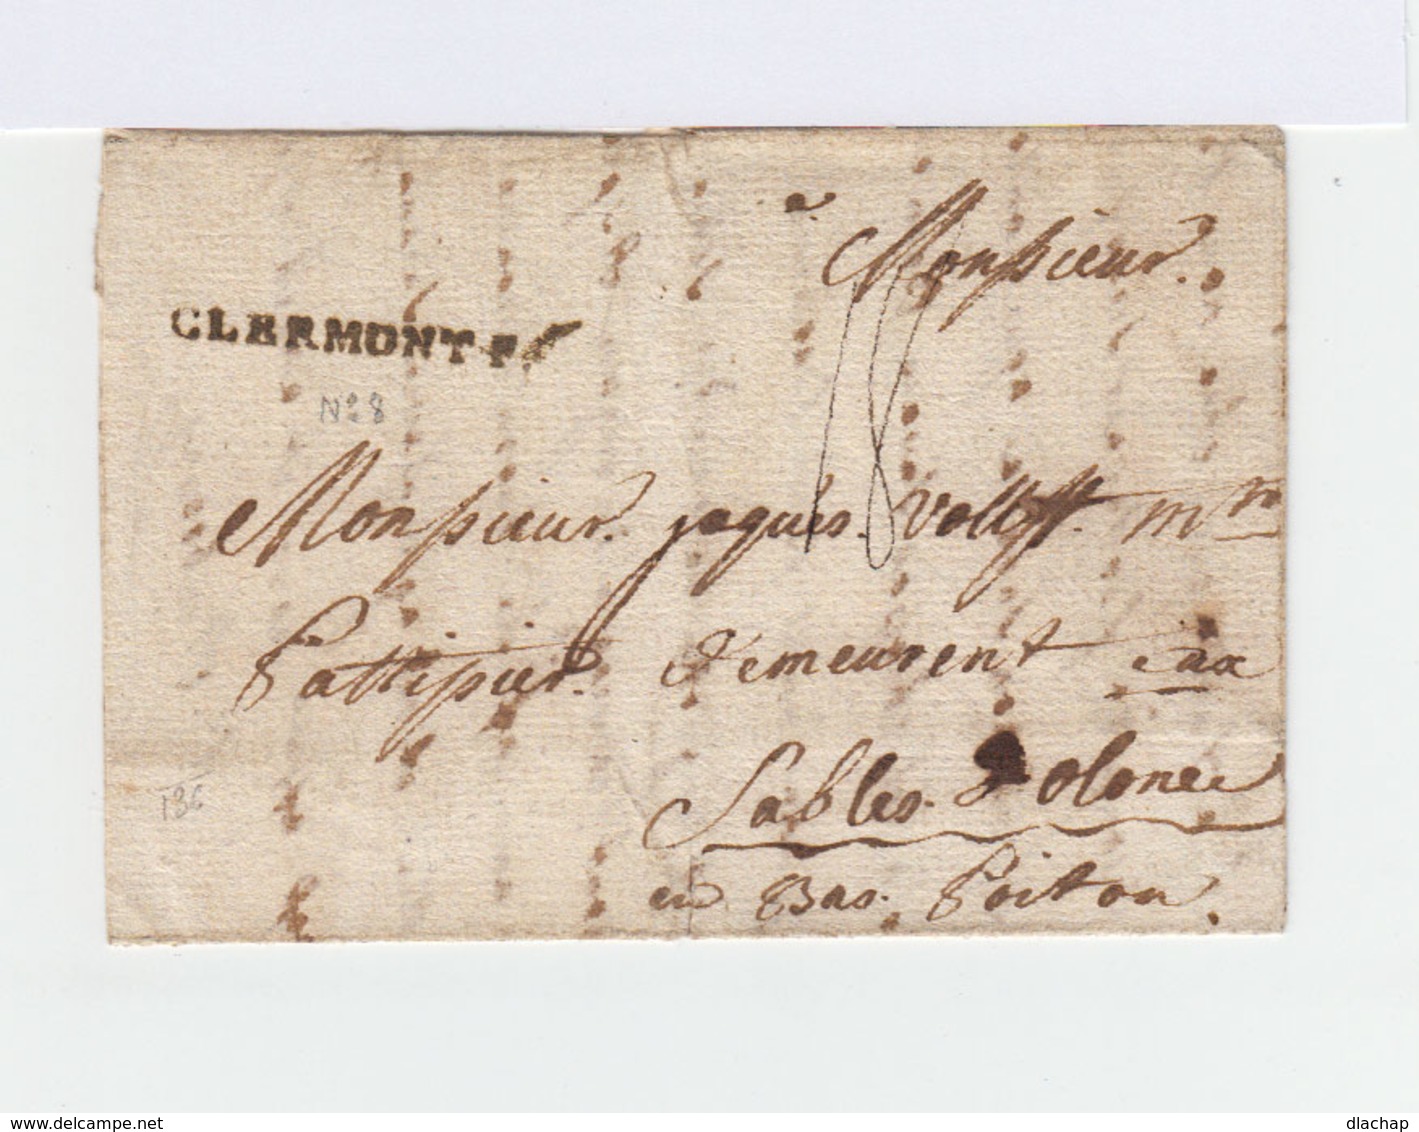 a
Monsieur.
CLERMONT-F
18
N° 8
Monsieur. jaques. m
Pattipier. Demeurent aux
Sables. D olonee
en Bas. Poitou.
136
www.delcampe.net
dlachap